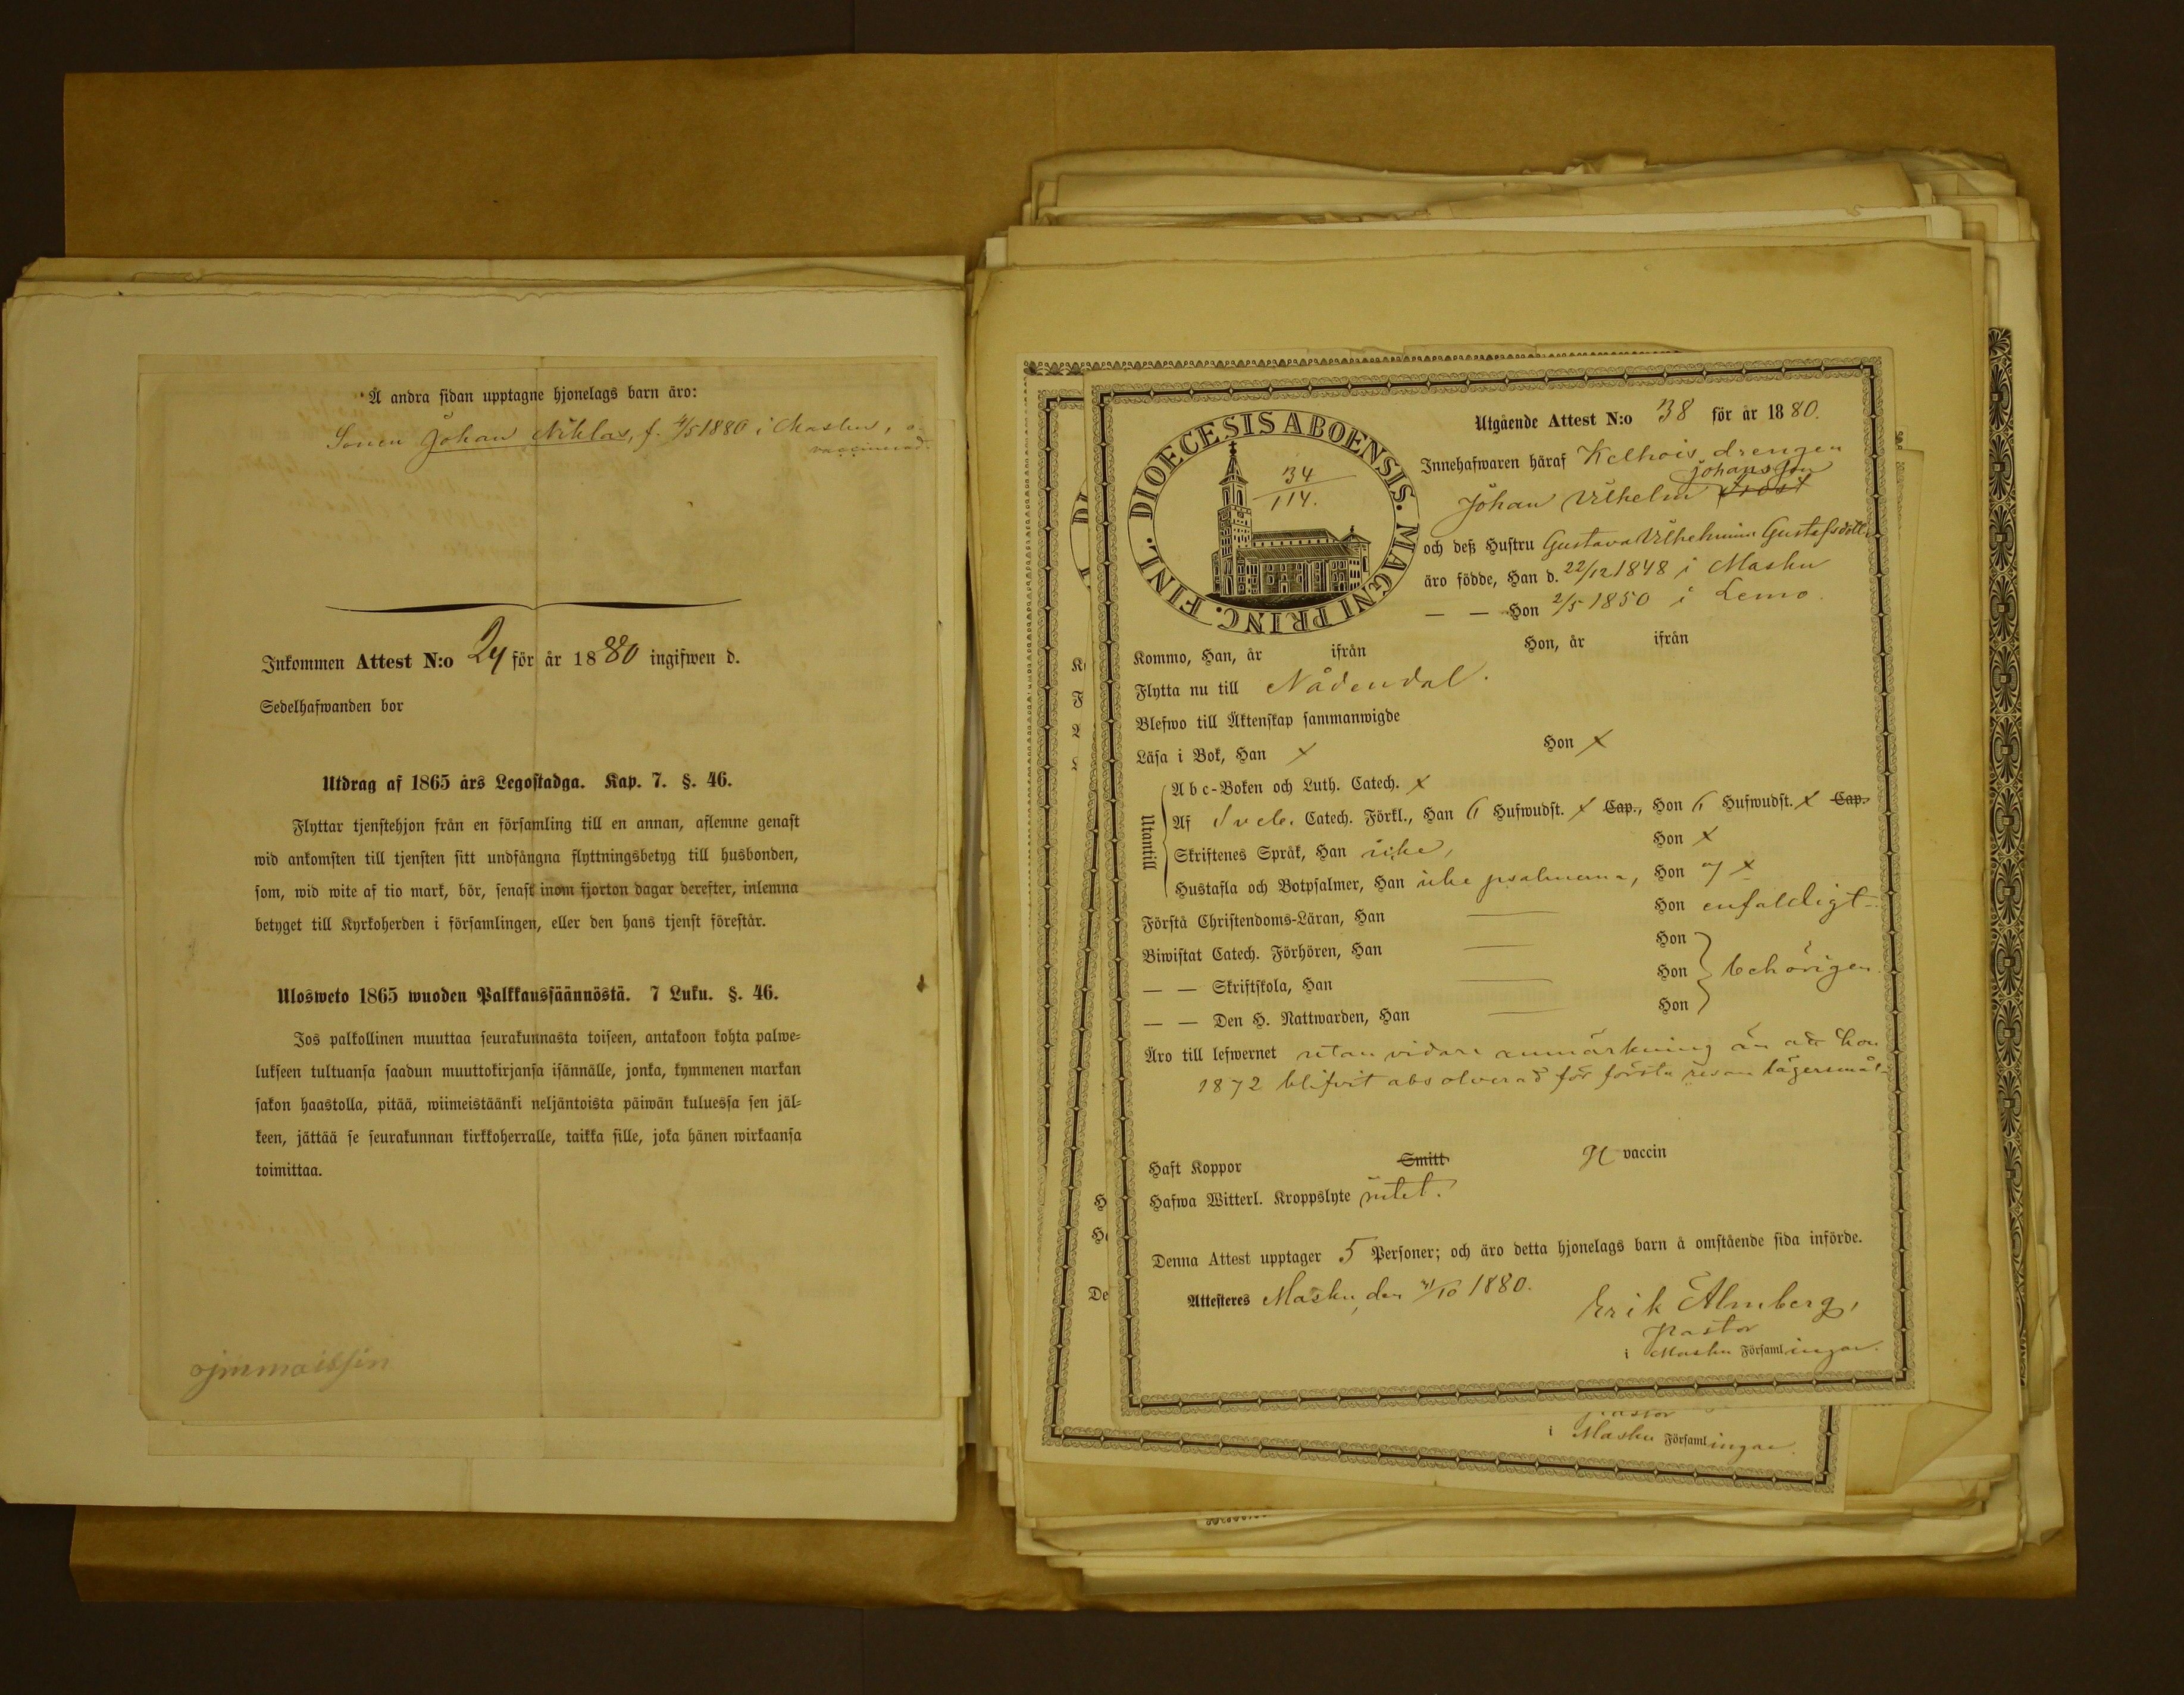 Å andra sidan upptagne hjonelags barn äro:
Sonen Johan Niklas, f. 4/5 1880 i Masku, o-
vaccinerad.
Inkommen Attest N:o 24 för år 1880 ingifwen d.
Sedelhafwanden bor
Utdrag af 1865 års Legostadga. Kap. 7. §. 46.
Flyttar tjenstehjon från en församling till en annan, aflemne genast
wid ankomsten till tjensten sitt undfångna flyttningsbetyg till husbonden,
som, wid wite af tio mark, bör, senast inom fjorton dagar derefter, inlemna
betyget till Kyrkoherden i församlingen, eller den hans tjenst förestår.
Ulosweto 1865 wuoden Palkkaussäännöstä. 7 Luku. §. 46.
Jos palkollinen muuttaa seurakunnasta toiseen, antakoon kohta palwe-
lukseen tultuansa saadun muuttokirjansa isännälle, jonka, kymmenen markan
sakon haastolla, pitää, wiimeistäänki neljäntoista päiwän kuluessa sen jäl-
keen, jättää se seurakunnan kirkkoherralle, taikka sille, joka hänen wirkaansa
toimittaa.
DIOECESIS ABOENSIS. MAGNI PRINC. FINL.
34
114.
Utgående Attest N:o 38 för år 1880.
Innehafwaren häraf Kelhois drengen
Johansson
Johan Vilhelm Frost
och deß Hustru Gustava Vilhelmina Gustafsdottr
äro födde, Han d. 22/12 1848 i Masku
— — Hon 2/5 1850 i Lemo.
Kommo, Han, år ifrån Hon, år ifrån
Flytta nu till Nådendal.
Blefwo till Äktenskap sammanwigde
Läsa i Bok, Han x Hon x
Utantill
A b c-Boken och Luth. Catech. x
Af Sveb. Catech. Förkl., Han 6 Hufwudst. x Cap., Hon 6 Hufwudst. x Cap.
Skriftenes Språk, Han icke, Hon x
Hustafla och Botpsalmer, Han icke psalmerna, Hon x
Förstå Christendoms-Läran, Han — Hon enfaldigt
Biwistat Catech. Förhören, Han — Hon
— — Skriftskola, Han — Hon behörigen
— — Den H. Nattwarden, Han — Hon
Äro till lefwernet utan vidare anmärkning än att hon
1872 blifvit absolverad för första resan lägersmål
Haft Koppor Smitt vaccin
Hafwa Witterl. Kroppslyte intet.
Denna Attest upptager 5 Personer; och äro detta hjonelags barn å omstående sida införde.
Attesteres Masku, den /10 1880.
Erik Almberg,
Pastor
i Masku Församlingar.
Pastor
i Masku Församlingar.